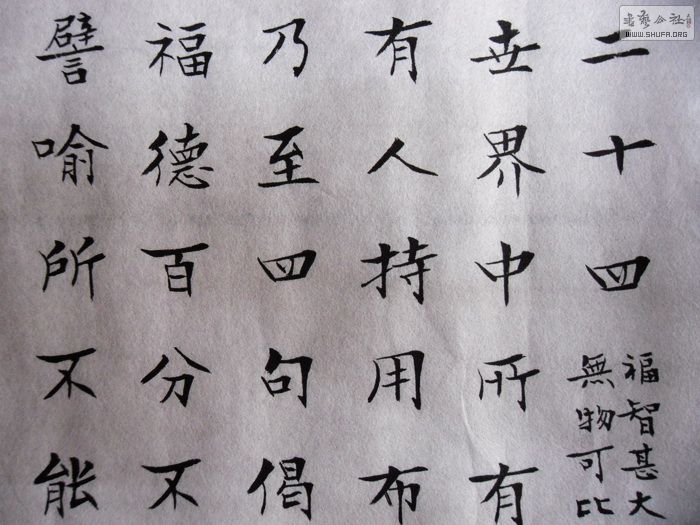 二十四
福智甚大
無物可比
世界中所有
有人持用布
乃至四句偈
福德百分不
譬喻所不能
書藝公社
WWW.SHUFA.ORG